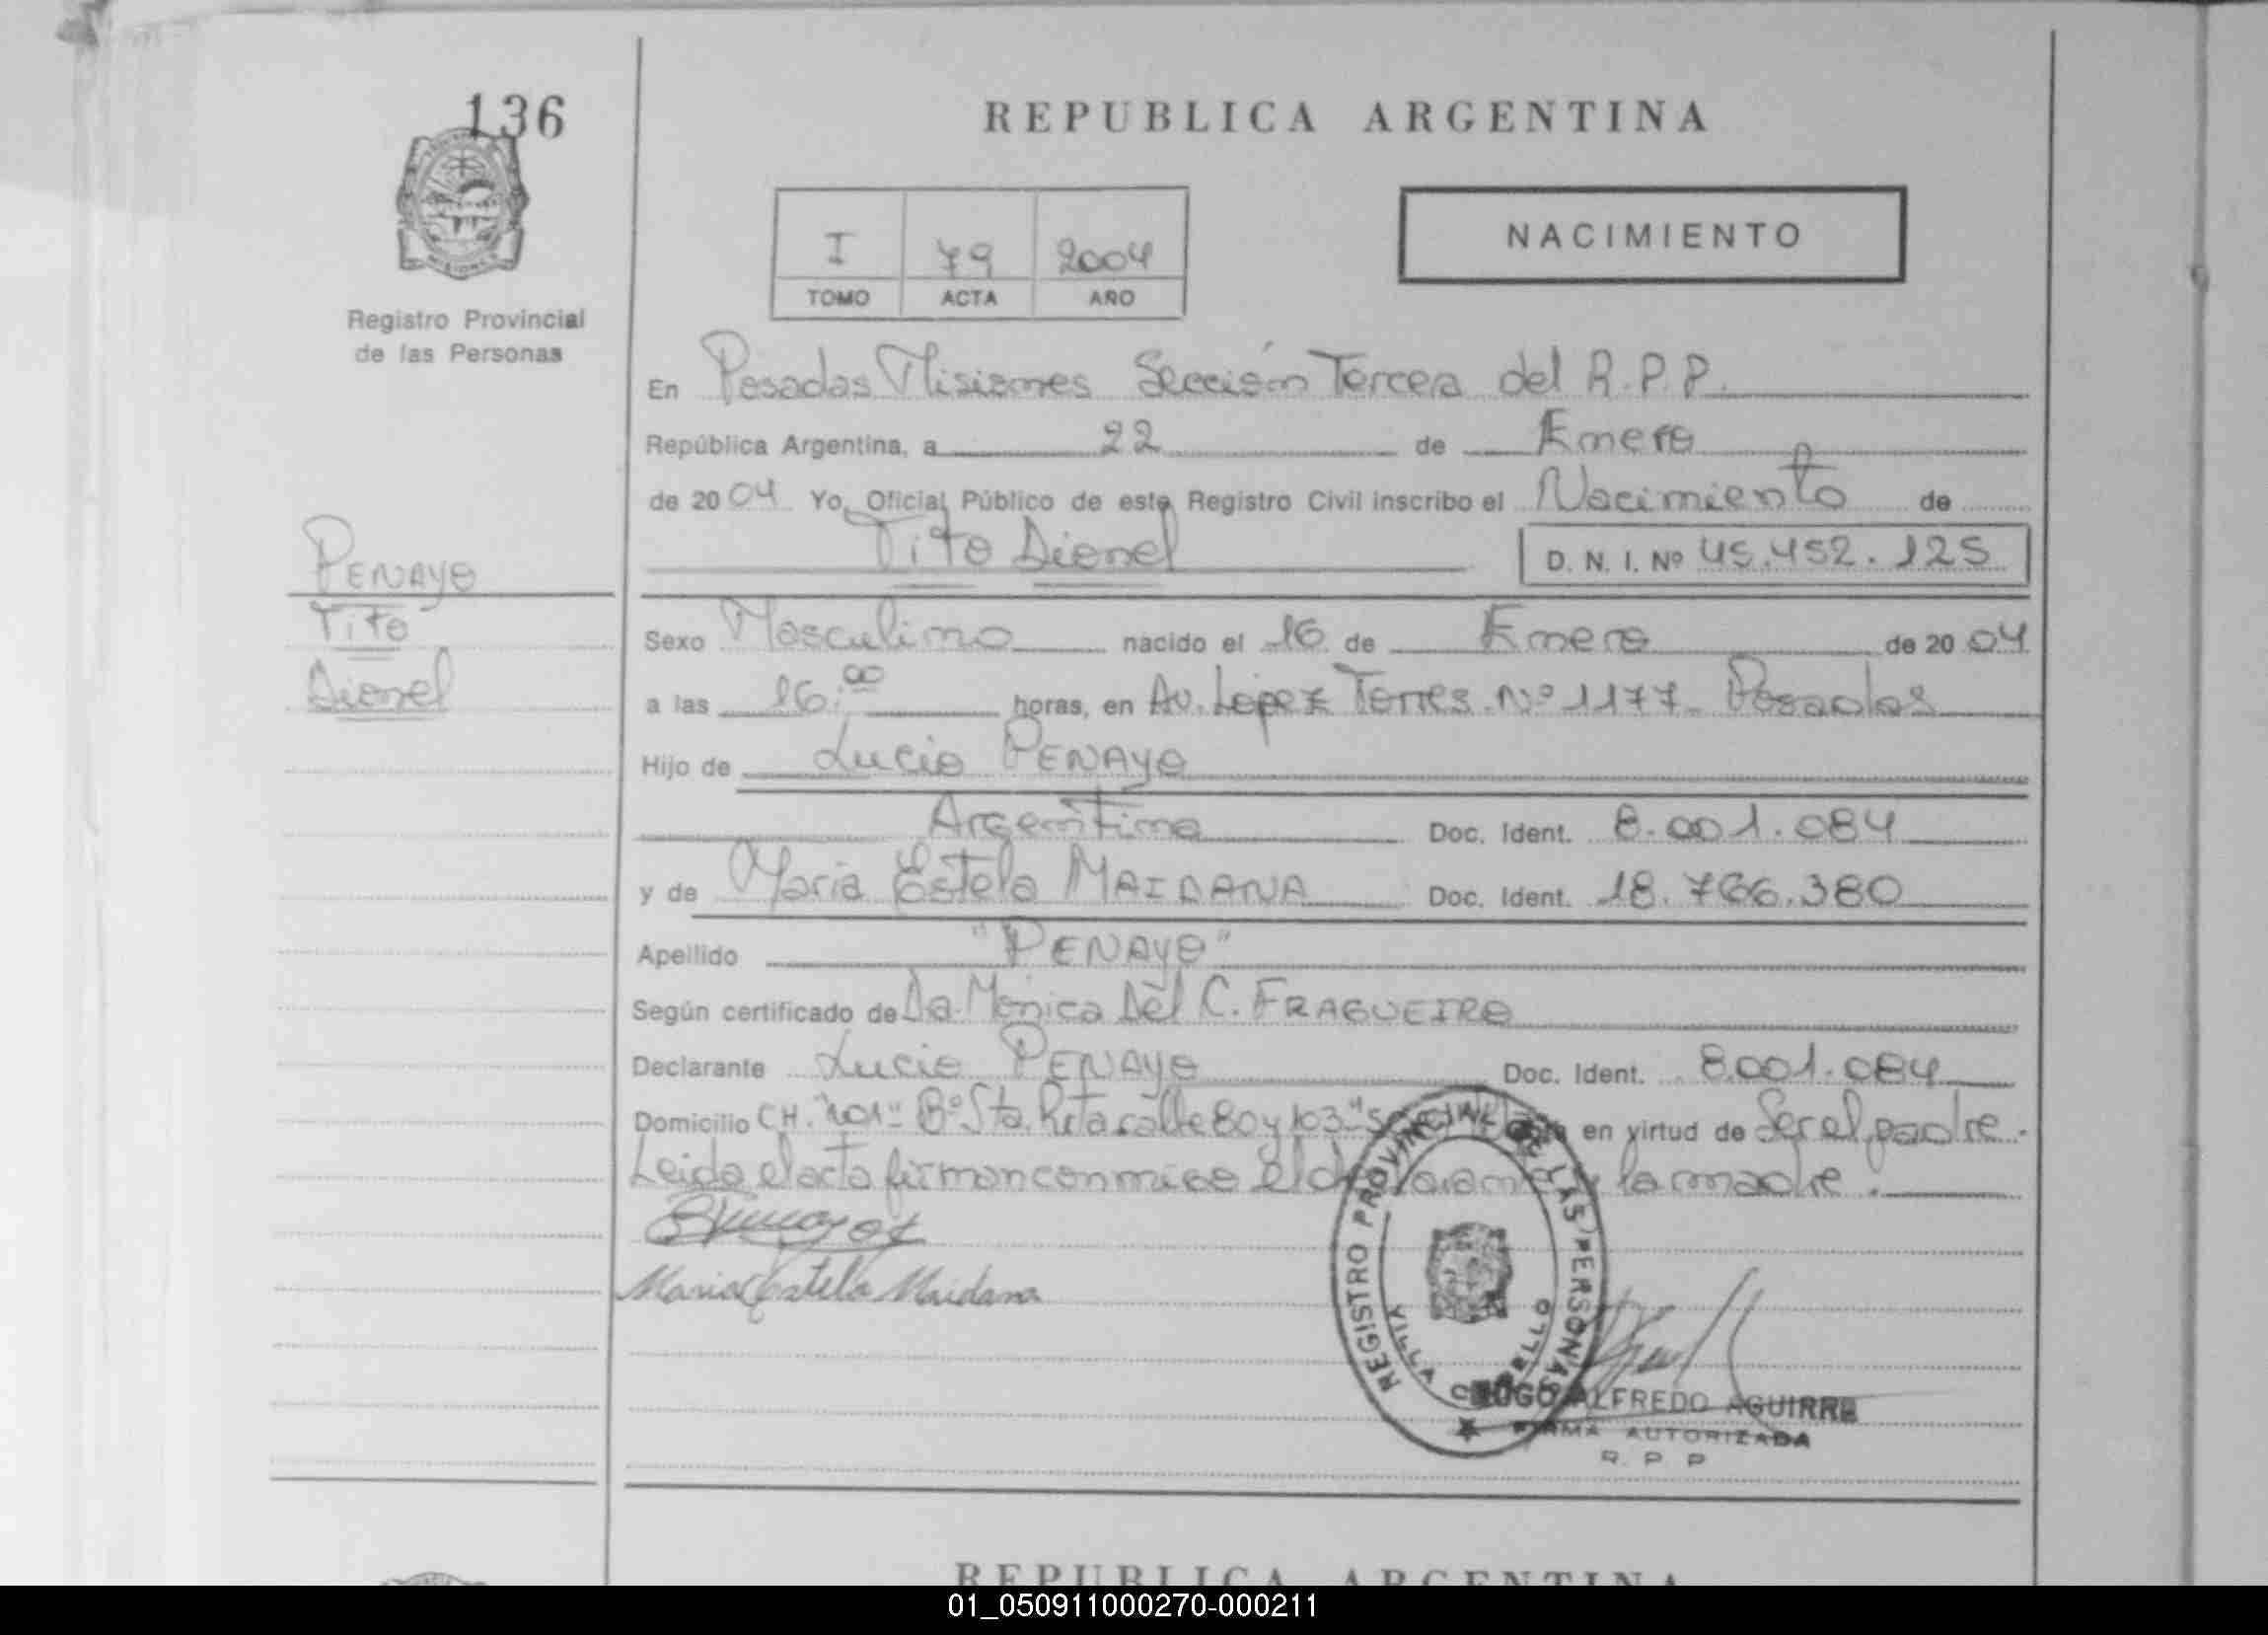 136
REPUBLICA ARGENTINA
I 79 2004
TOMO ACTA AÑO
NACIMIENTO
MISIONES
Registro Provincial
de las Personas
En Posadas Misiones Sección Tercera del R.P.P.
República Argentina, a 22 de Enero
de 2004 Yo, Oficial Público de este Registro Civil inscribo el Nacimiento de
Tito Dionel
D. N. I. Nº 45.452.125
PENAYO
Tito
Dionel
Sexo Masculino nacido el 16 de Enero de 2004
a las 16:00 horas, en Av. López Torres Nº 1177- Posadas
Hijo de Lucio PENAYO
Argentina Doc. Ident. 8.001.084
y de Maria Estela MAIDANA Doc. Ident. 18.766.380
Apellido "PENAYO"
Según certificado de Da. Mónica Del C. FRAGUEIRO
Declarante Lucio PENAYO Doc. Ident. 8.001.084
Domicilio CH. "101" Bº Sta. Rita calle 80 y 103 en virtud de Ser el padre.-
Leida el acta firman conmigo el declarante y la madre.
Maria Estela Maidana
REGISTRO PROVINCIAL DE LAS PERSONAS
VILLA CABELLO
HUGO ALFREDO AGUIRRE
FIRMA AUTORIZADA
R. P P
REPUBLICA ARGENTINA
01_050911000270-000211